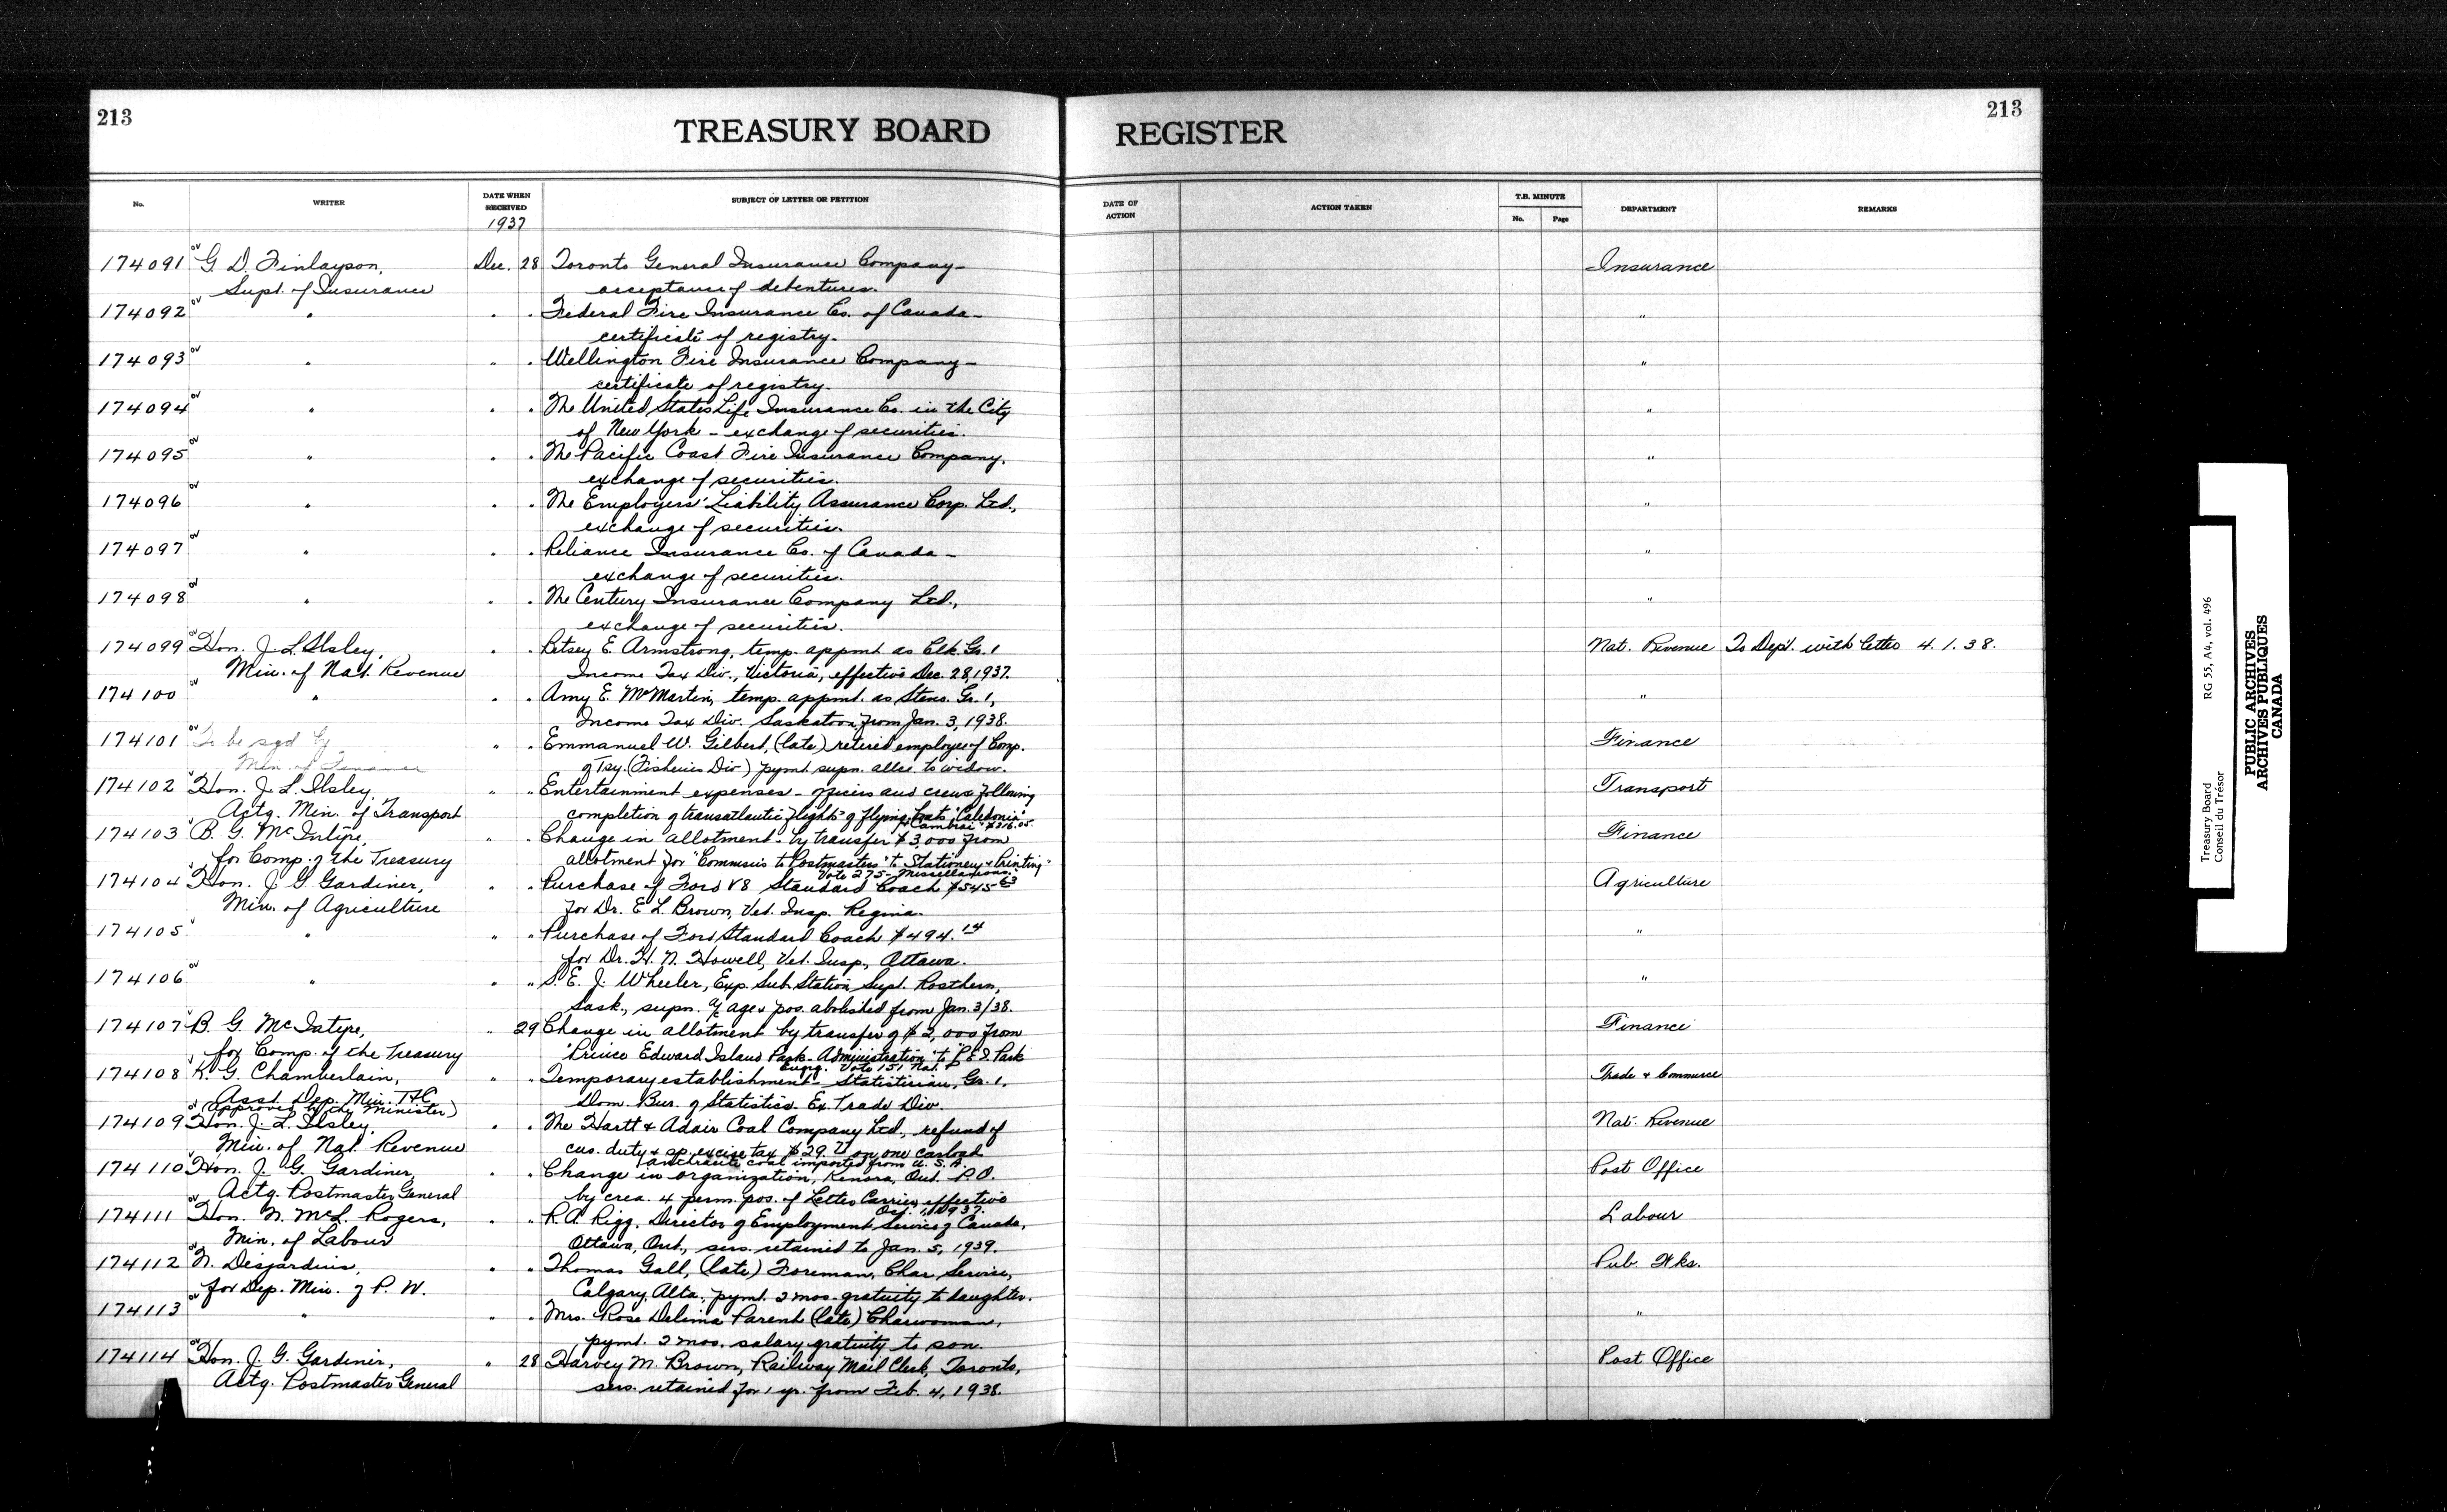 213
TREASURY BOARD REGISTER
213
No. WRITER DATE WHEN RECEIVED SUBJECT OF LETTER OR PETITION DATE OF ACTION ACTION TAKEN T.B. MINUTE No. Page DEPARTMENT REMARKS
1937
174091 G. D. Finlayson, Dec. 28 Toronto General Insurance Company- Insurance
Supt. of Insurance acceptance of debentures.
174092 " " " Federal Fire Insurance Co. of Canada- "
certificate of registry.
174093 " " " Wellington Fire Insurance Company- "
certificate of registry.
174094 " " " The United States Life Insurance Co. in the City "
of New York - exchange of securities.
174095 " " " The Pacific Coast Fire Insurance Company, "
exchange of securities.
174096 " " " The Employers' Liability Assurance Corp. Ltd., "
exchange of securities.
174097 " " " Reliance Insurance Co. of Canada- "
exchange of securities.
174098 " " " The Century Insurance Company Ltd., "
exchange of securities.
174099 Hon. J. L. Ilsley, " " Betsey E. Armstrong, temp. appmt as Clk. Gr. 1 Nat. Revenue To Dept. with letter 4.1.38.
Min. of Nat. Revenue Income Tax Div., Victoria, effective Dec. 28, 1937.
174100 " " " Amy E. McMartin, temp. appmt. as Steno. Gr. 1, "
Income Tax Div. Saskatoon from Jan. 3, 1938.
174101 To be sgd by " " Emmanuel W. Gilbert, (late) retired employee of Comp. Finance
Min. of Finance of Tsy. (Fisheries Div.) pymt. supn. allce. to widow.
174102 Hon. J. L. Ilsley, " " Entertainment expenses - officers and crews following Transport
Actg. Min. of Transport completion of transatlantic flights of flying boats "Caledonia"
& "Cambria" $316.05.
174103 B. G. McIntyre, " " Change in allotment - by transfer $3,000 from Finance
for Comp. of the Treasury allotment for "Commsn's to Postmasters" to "Stationery & Printing"
Vote 275 - Miscellaneous.
174104 Hon. J. G. Gardiner, " " Purchase of Ford V8 Standard Coach $545.63 Agriculture
Min. of Agriculture for Dr. E. L. Brown, Vet. Insp. Regina.
174105 " " " Purchase of Ford Standard Coach $494.14 "
for Dr. H. N. Howell, Vet. Insp., Ottawa.
174106 " " " S. E. J. Wheeler, Exp. Sub. Station Supt. Rosthern, "
Sask., supn. a/c age & pos. abolished from Jan. 3/38.
174107 B. G. McIntyre, " 29 Change in allotment by transfer of $2,000 from Finance
for Comp. of the Treasury "Prince Edward Island Park - Administration" to "P.E.I. Park
Engrg. Vote 151 Nat. P
174108 K. G. Chamberlain, " " Temporary establishment - Statistician, Gr. 1, Trade & Commerce
Asst. Dep. Min. T&C Dom. Bur. of Statistics Ex. Trade Div.
(Approved by the Minister)
174109 Hon. J. L. Ilsley, " " The Hartt & Adair Coal Company Ltd., refund of Nat. Revenue
Min. of Nat. Revenue cus. duty & sp. excise tax $29. on one carload
anthracite coal imported from U.S.A.
174110 Hon. J. G. Gardiner, " " Change in organization, Kenora, Ont. P.O. Post Office
Actg. Postmaster General by crea. 4 perm. pos. of Letter Carrier, effective
Oct. 1, 1937.
174111 Hon. N. McL. Rogers, " " R. A. Rigg, Director of Employment Service of Canada, Labour
Min. of Labour Ottawa, Ont., sers. retained to Jan. 5, 1939.
174112 N. Desjardins, " " Thomas Gall, (late) Foreman, Char Service, Pub. Wks.
for Dep. Min. of P. W. Calgary, Alta., pymt. 2 mos. gratuity to daughter.
174113 " " " Mrs. Rose Delima Parent (late) Charwoman, "
pymt. 2 mos. salary gratuity to son.
174114 Hon. J. G. Gardiner, " 28 Harvey M. Brown, Railway Mail Clerk, Toronto, Post Office
Actg. Postmaster General sers. retained for 1 yr. from Feb. 4, 1938.
Treasury Board RG 55, A4, vol. 496
Conseil du Trésor
PUBLIC ARCHIVES
ARCHIVES PUBLIQUES
CANADA